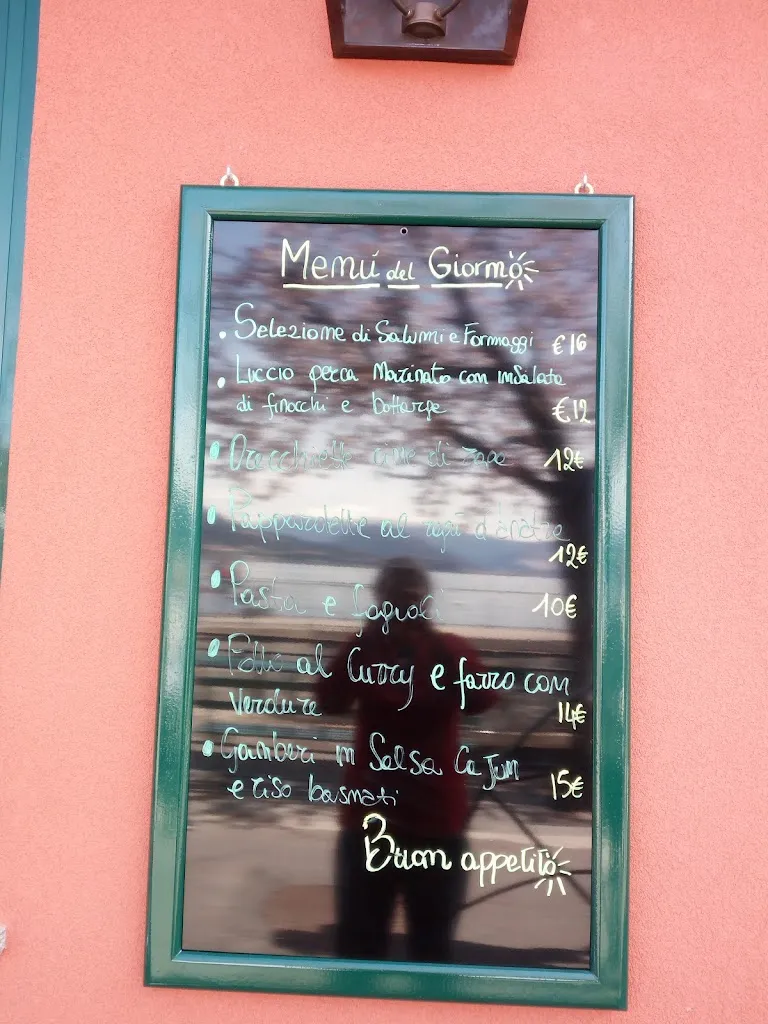 Menú del Giorno
• Selezione di Salumi e Formaggi €16
• Luccio perca Marinato con insalata
di finocchi e bottarga €12
• Orecchiette cime di rape 12€
• Pappardelle al ragù d'anatra
12€
• Pasta e fagioli 10€
• Pollo al Curry e farro con
Verdure 14€
• Gamberi in Salsa Cajun
e riso basmati 15€
Buon appetito